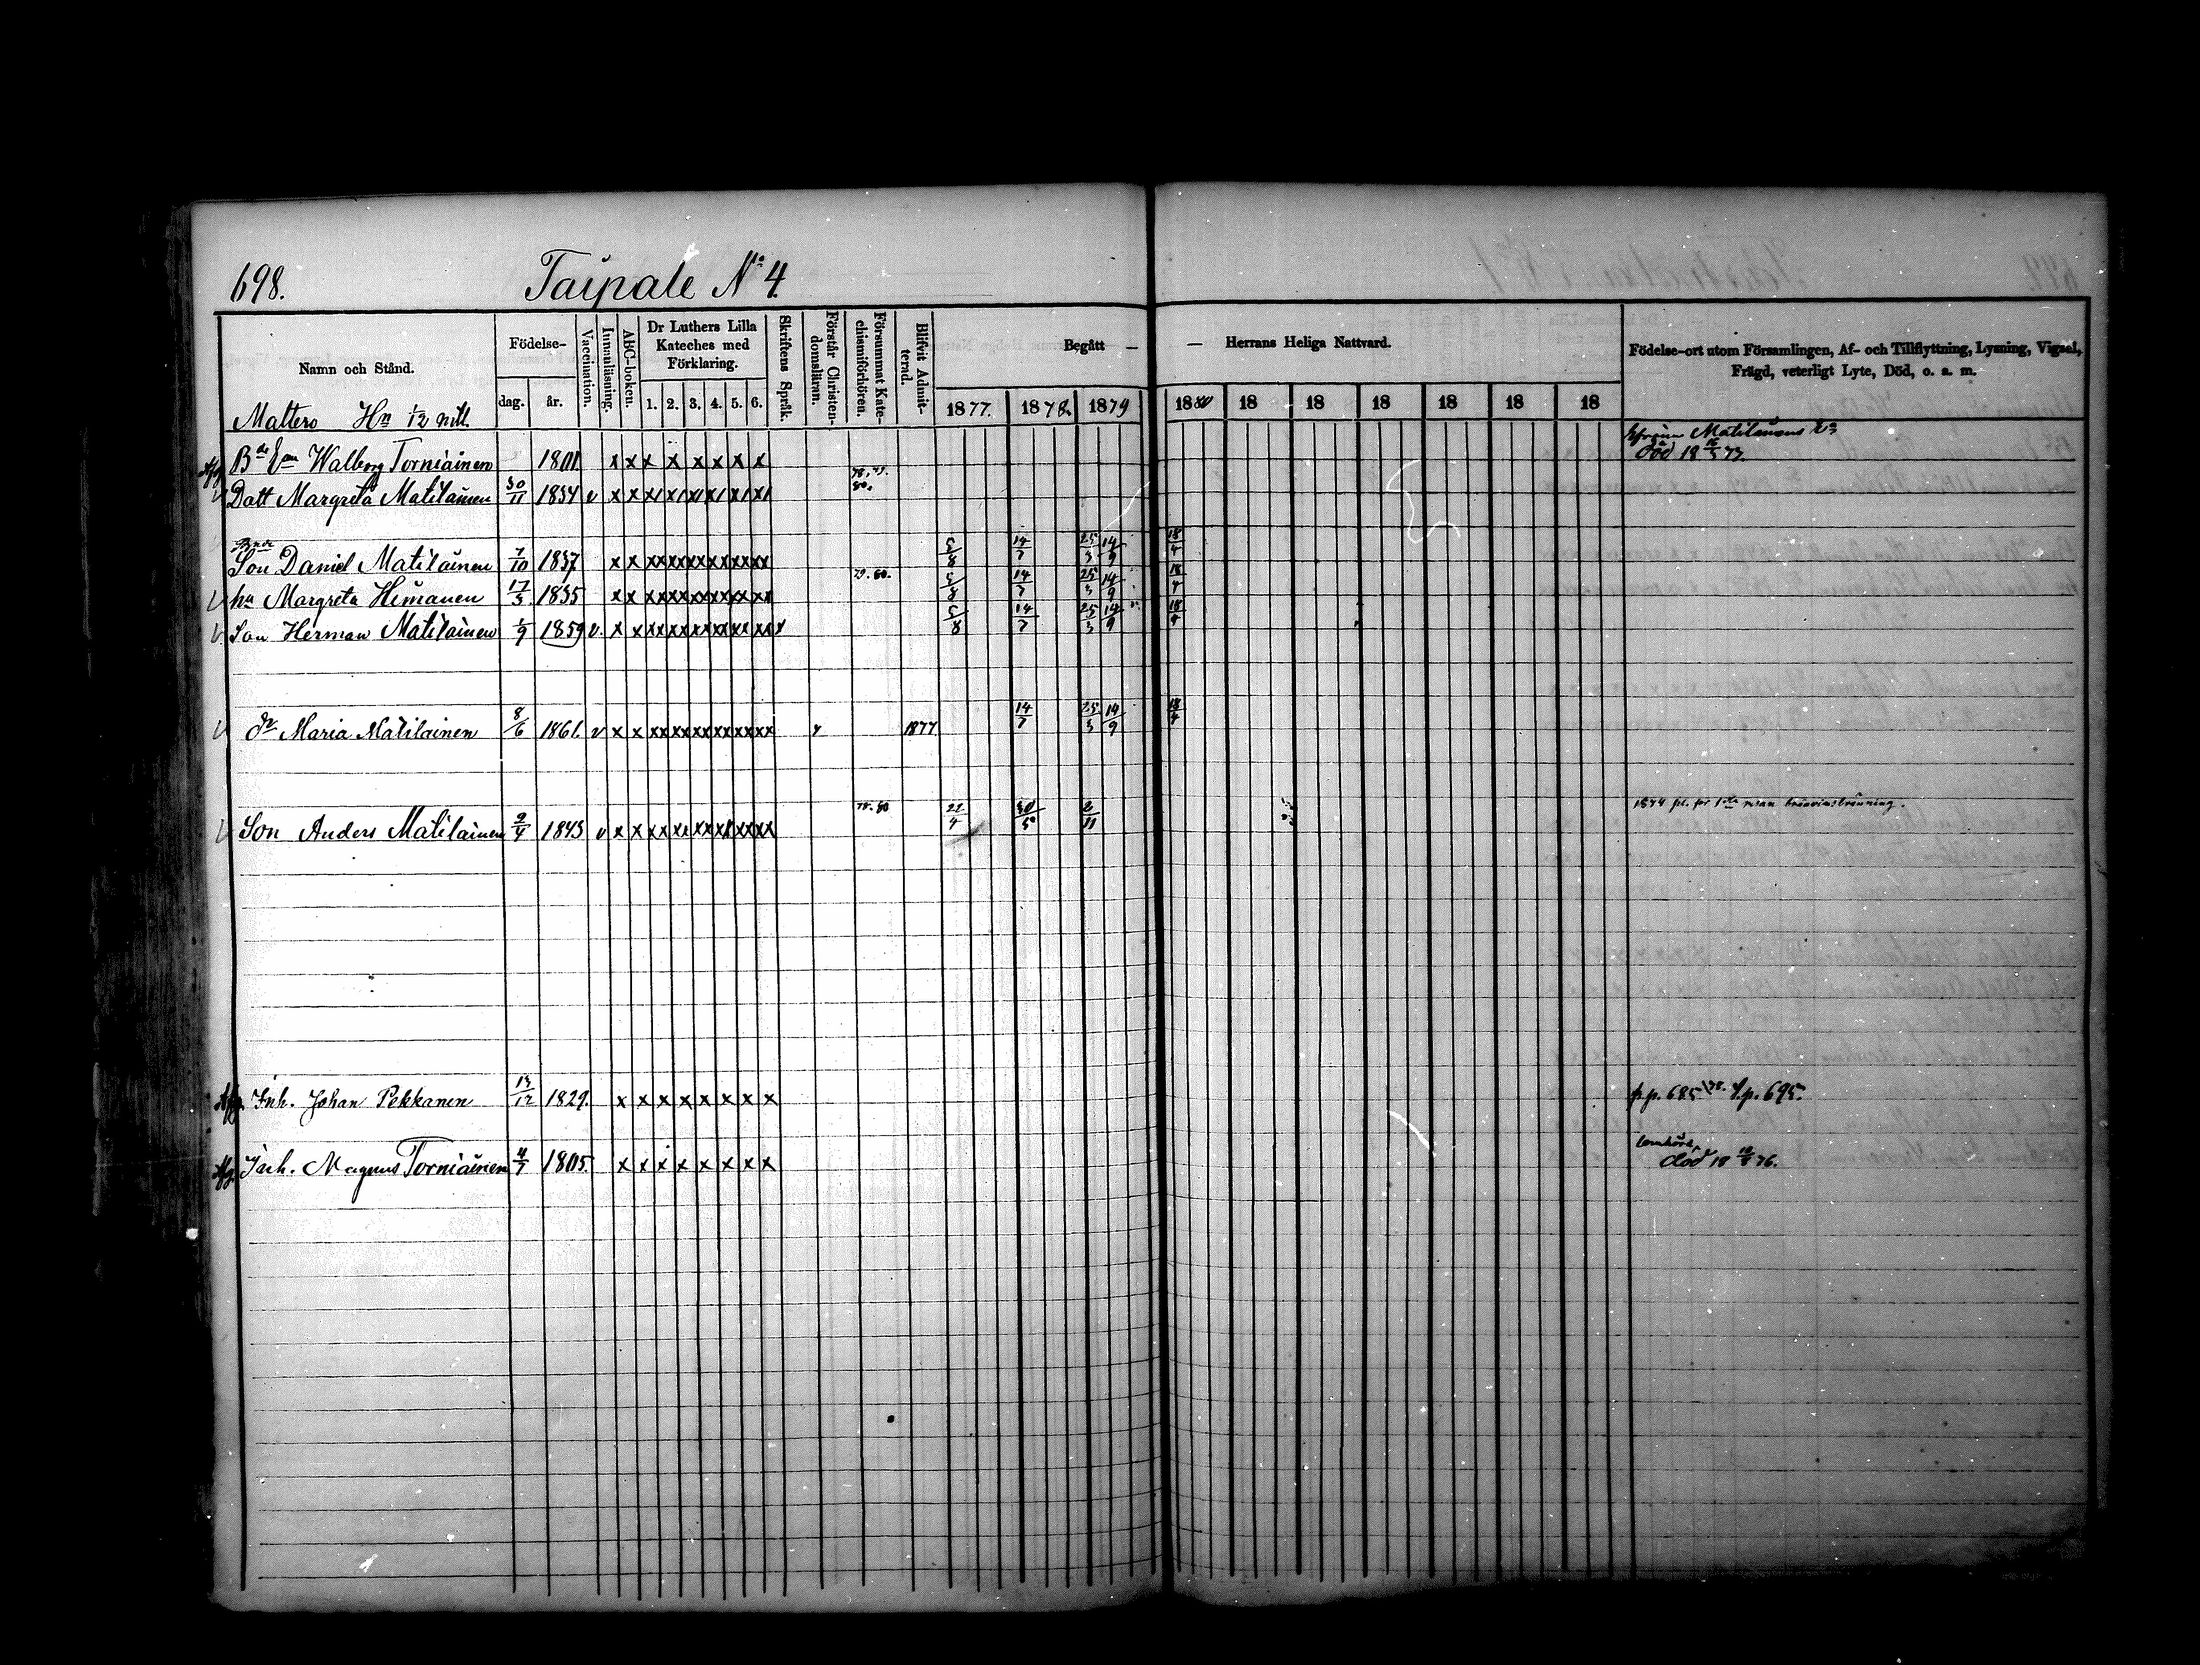 698. Taipale No 4.
Namn och Stånd. Födelse- dag. år. Vaccination. Innanläsning. ABC-boken. Dr Luthers Lilla Kateches med Förklaring. 1. 2. 3. 4. 5. 6. Skriftens Språk. Förstår Christendomsläran. Försummat Katechismiförhören. Blifvit Admitterad. Begått — — Herrans Heliga Nattvard. Födelse-ort utom Församlingen, Af- och Tillflyttning, Lysning, Vigsel, Frägd, veterligt Lyte, Död, o. a. m.
1877. 1878. 1879 1880 18 18 18 18 18 18
Mattero Hn 1/2 mtl.
Walborg Torniainen 1801 x x x x x x x x Matilainens död 18 73.
Dott Margreta Matilainen 30/11 1834 v x x x x x x x x 78. 79. 80.
Bnde
Son Daniel Matilainen 7/10 1837 x x xx xx xx xx xx xx 5/8 14/7 25/3 14/9 18/4
hu Margreta Himanen 17/3 1835 x x xx xx xx xx xx xx 79. 80. 5/8 14/7 25/3 14/9 18/4
Son Herman Matilainen 1/9 1859 v. x x xx xx xx xx xx xx x 5/8 14/7 25/3 14/9 18/4
dr Maria Matilainen 8/6 1861. v x x xx xx xx xx xx xx v 1877 14/7 25/3 14/9 18/4
Son Anders Matilainen 9/4 1843 v x x xx xx xx xx xx xx 78. 80 22/4 30/5 2/11 1874 pl. för 1sta resan bränvinsbränning.
Afg. Inh. Johan Pekkanen 13/12 1829. x x x x x x x x p. 685 78. p. 695.
Afg. Inh. Magnus Torniainen 4/7 1805. x x x x x x x x död 18 76.